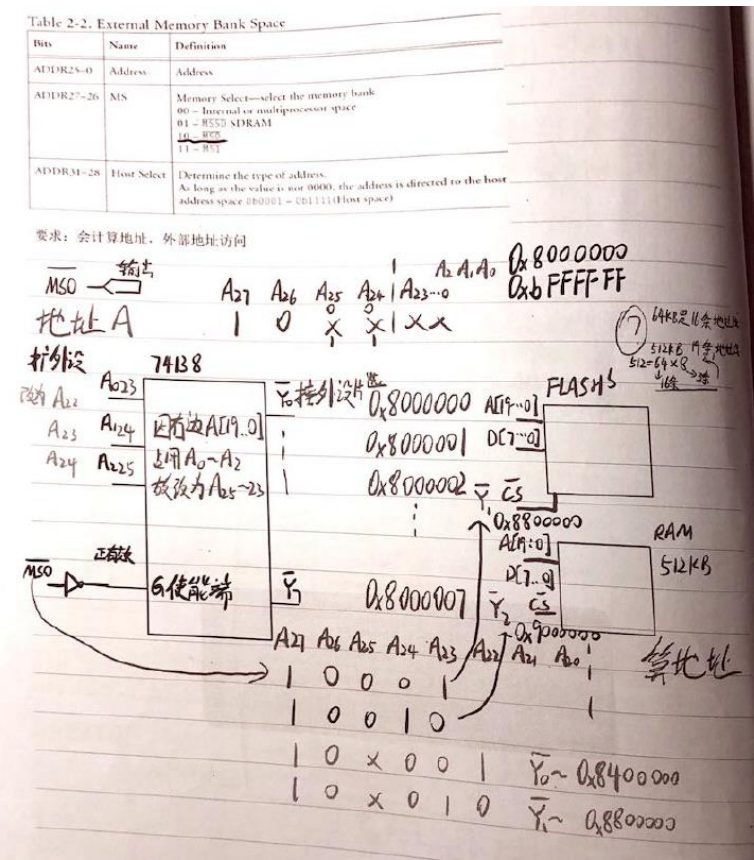 Table 2-2. External Memory Bank Space
Bits Name Definition
ADDR25–0 Address Address
ADDR27–26 MS Memory Select—select the memory bank
00 – Internal or multiprocessor space
01 – MSSD SDRAM
10 – MS0
11 – MS1
ADDR31–28 Host Select Determine the type of address.
As long as the value is not 0000, the address is directed to the host
address space 0b0001 – 0b1111(Host space)
要求：会计算地址、外部地址访问
MS0 输出 A27 A26 A25 A24 A23…0 A2 A1 A0 0x8000000
0xbFFFFFF
地址A 1 0 X X X X
0 0
1 1
7 64KB是16条地址线
512KB 19条地址线
512=64×8
16条 3条
扩外设 74138
改为A22 A023 Y0接外设片选 0x8000000 A[19…0] FLASH
A23 A124 因右边A[19..0] 0x8000001 D[7…0]
A24 A225 占用A0~A2 0x8000002 Y1 CS
故改为A25~23 0x8800000
A[19:0] RAM
正有效 D[7..0] 512KB
MS0 G使能端 Y7 0x8000007 Y2 CS
0x9000000
A27 A26 A25 A24 A23 A22 A21 A20 算地址
1 0 0 0 1
1 0 0 1 0
1 0 X 0 0 1 Y0~ 0x8400000
1 0 X 0 1 0 Y1~ 0x8800000